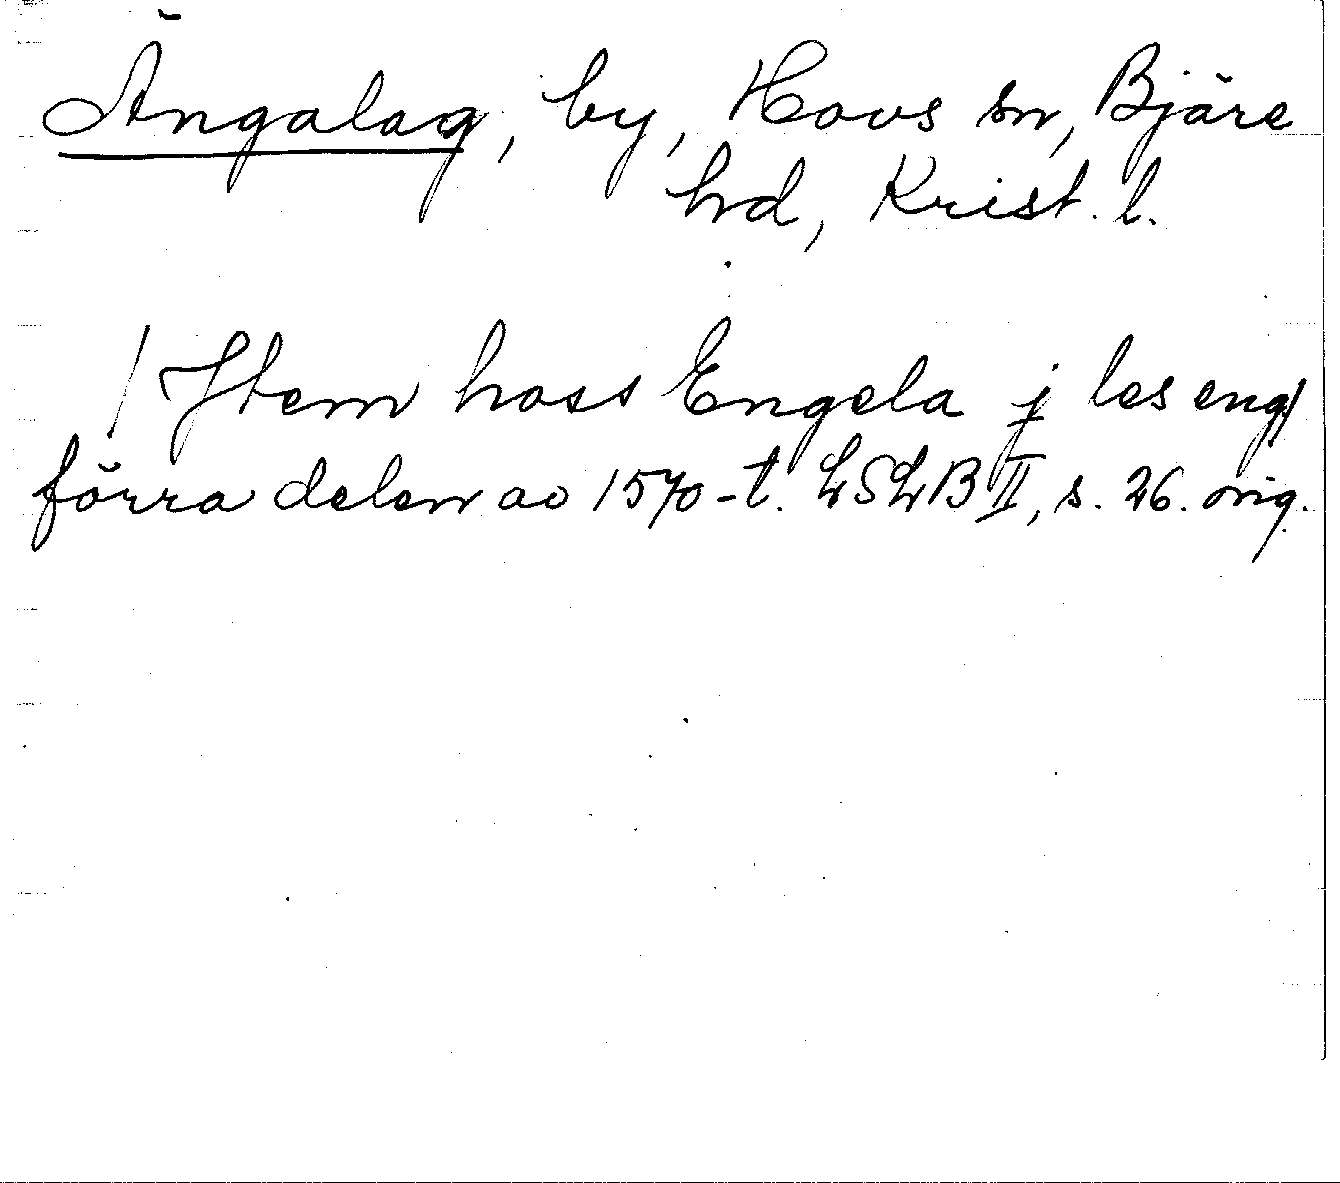 Ängalag, by, Hovs sn, Bjäre
hd, Krist. l.
/ Jtem hoss Engela j les eng/
förra delen av 1570-t. LSLB II, s. 26. orig.